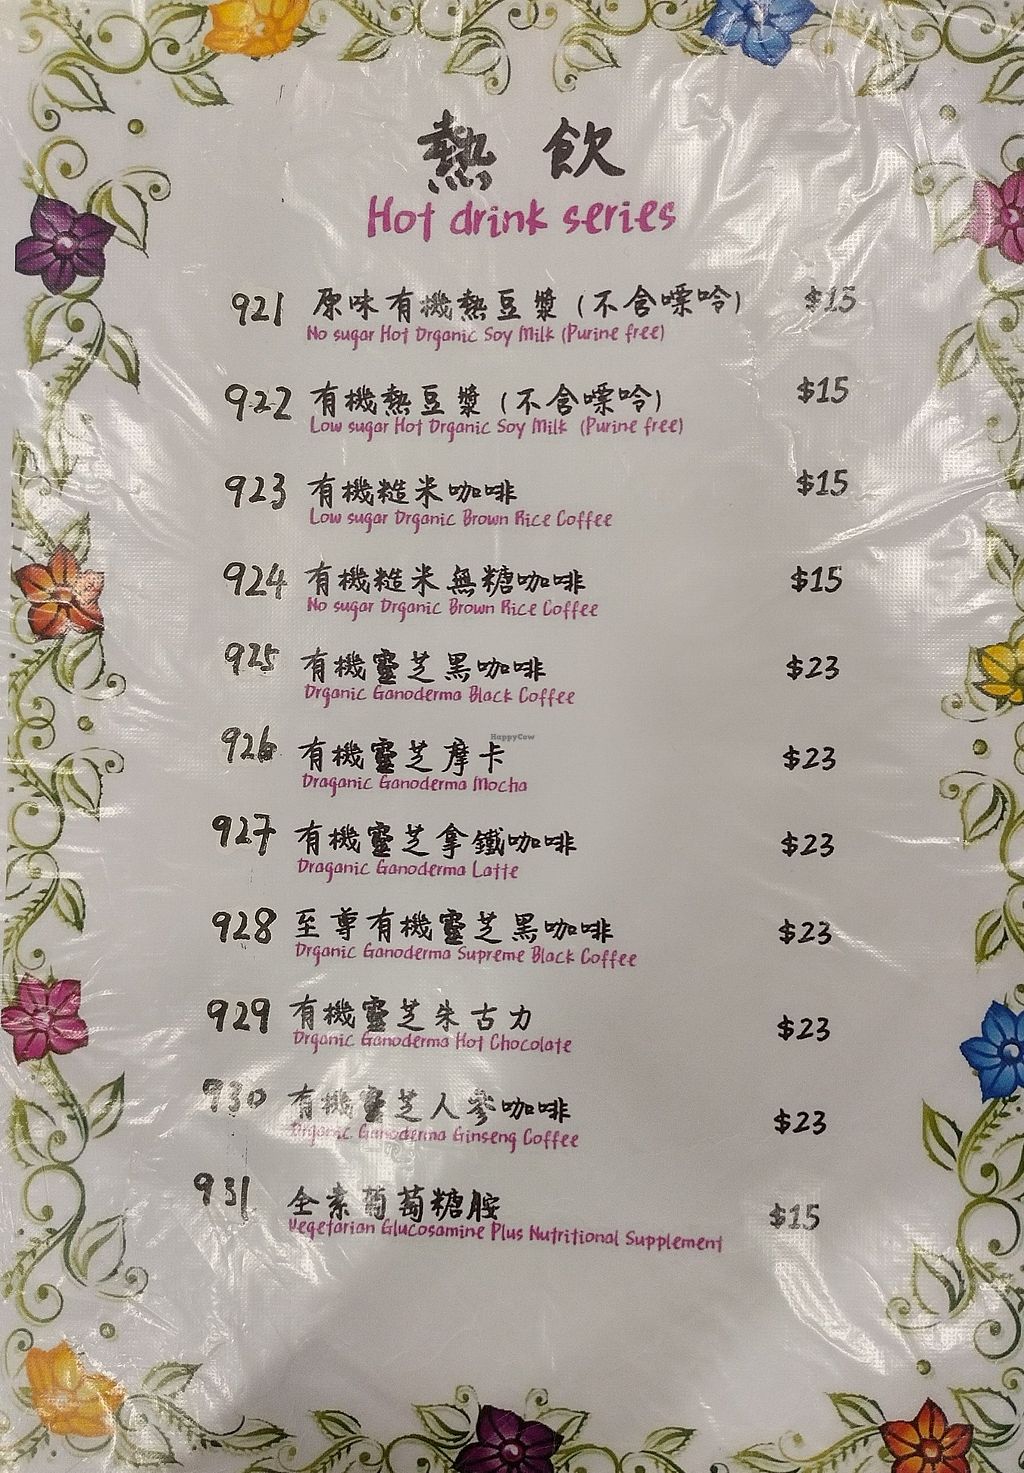 熱飲
Hot drink series
921 原味有機熱豆漿 (不含嘌呤) $15
No sugar Hot Organic Soy Milk (Purine free)
922 有機熱豆漿 (不含嘌呤) $15
Low sugar Hot Organic Soy Milk (Purine free)
923 有機糙米咖啡 $15
Low sugar Organic Brown Rice Coffee
924 有機糙米無糖咖啡 $15
No sugar Organic Brown Rice Coffee
925 有機靈芝黑咖啡 $23
Organic Ganoderma Black Coffee
926 有機靈芝摩卡 $23
Oraganic Ganoderma Mocha
HappyCow
927 有機靈芝拿鐵咖啡 $23
Oraganic Ganoderma Latte
928 至尊有機靈芝黑咖啡 $23
Organic Ganoderma Supreme Black Coffee
929 有機靈芝朱古力 $23
Organic Ganoderma Hot Chocolate
930 有機靈芝人參咖啡 $23
Organic Ganoderma Ginseng Coffee
931 全素葡萄糖胺 $15
Vegetarian Glucosamine Plus Nutritional Supplement